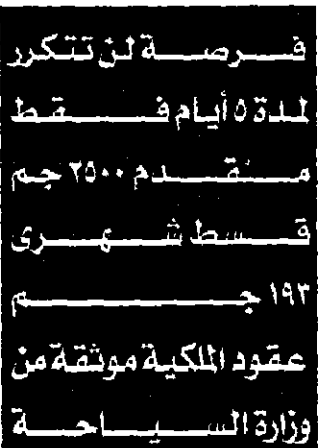 فرصة لن تتكرر
لمدة ٥ أيام فقط
مقدم ٢٥٠٠ جم
قسط شهرى
١٩٣ جم
عقود الملكية موثقة من
وزارة السياحة